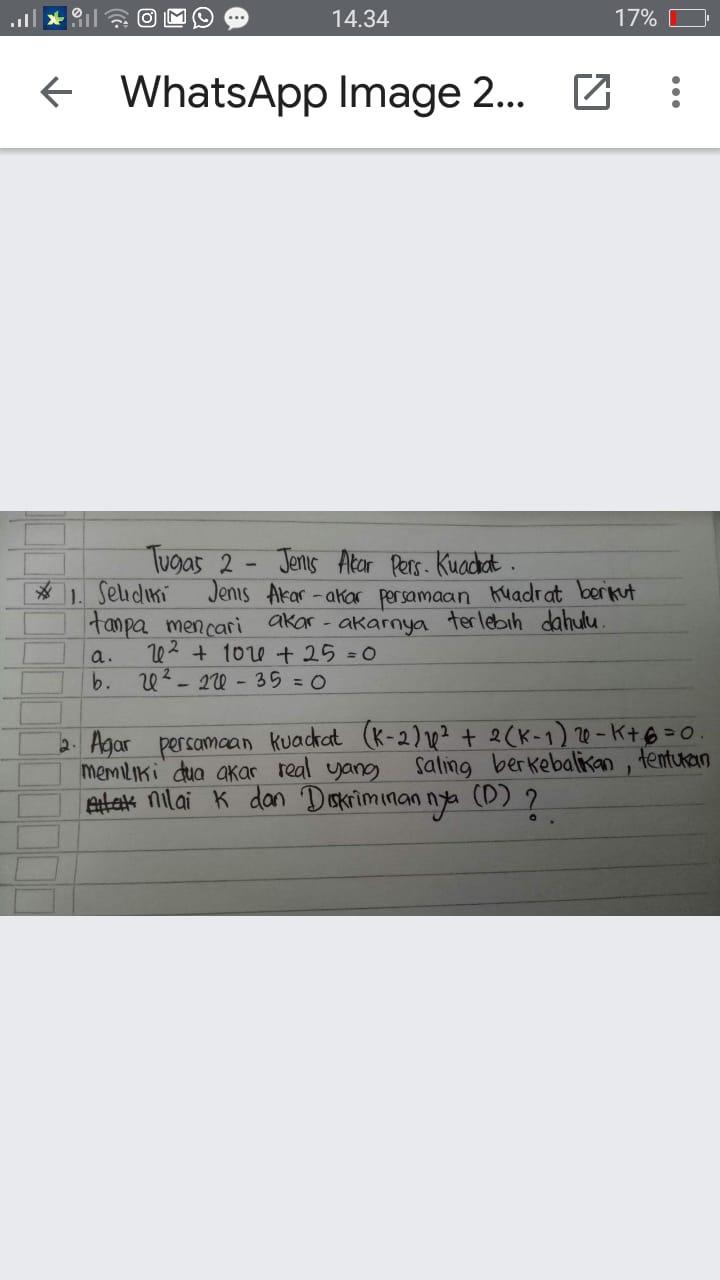 14.34
17%
WhatsApp Image 2...
Tugas 2 - Jenis Akar Pers. Kuadrat.
1. Selidiki Jenis Akar-akar persamaan kuadrat berikut
tanpa mencari akar-akarnya terlebih dahulu.
a. x² + 10x + 25 = 0
b. x² - 2x - 35 = 0
2. Agar persamaan kuadrat (K-2)x² + 2(K-1)x - K+6=0.
memiliki dua akar real yang saling berkebalikan, tentukan
nilai K dan Diskriminannya (D)?